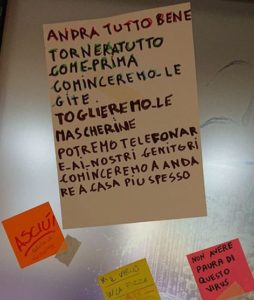 ANDRA TUTTO BENE
TORNERA TUTTO
COME-PRIMA
COMINCEREMO-LE
GITE.
TOGLIEREMO-LE
MASCHERINE
POTREMO TELEFONAR
E-AI-NOSTRI GENITORI
COMINCEREMO A ANDA
RE A CASA PIÙ SPESSO
NON AVERE
PAURA DI
QUESTO
VIRUS